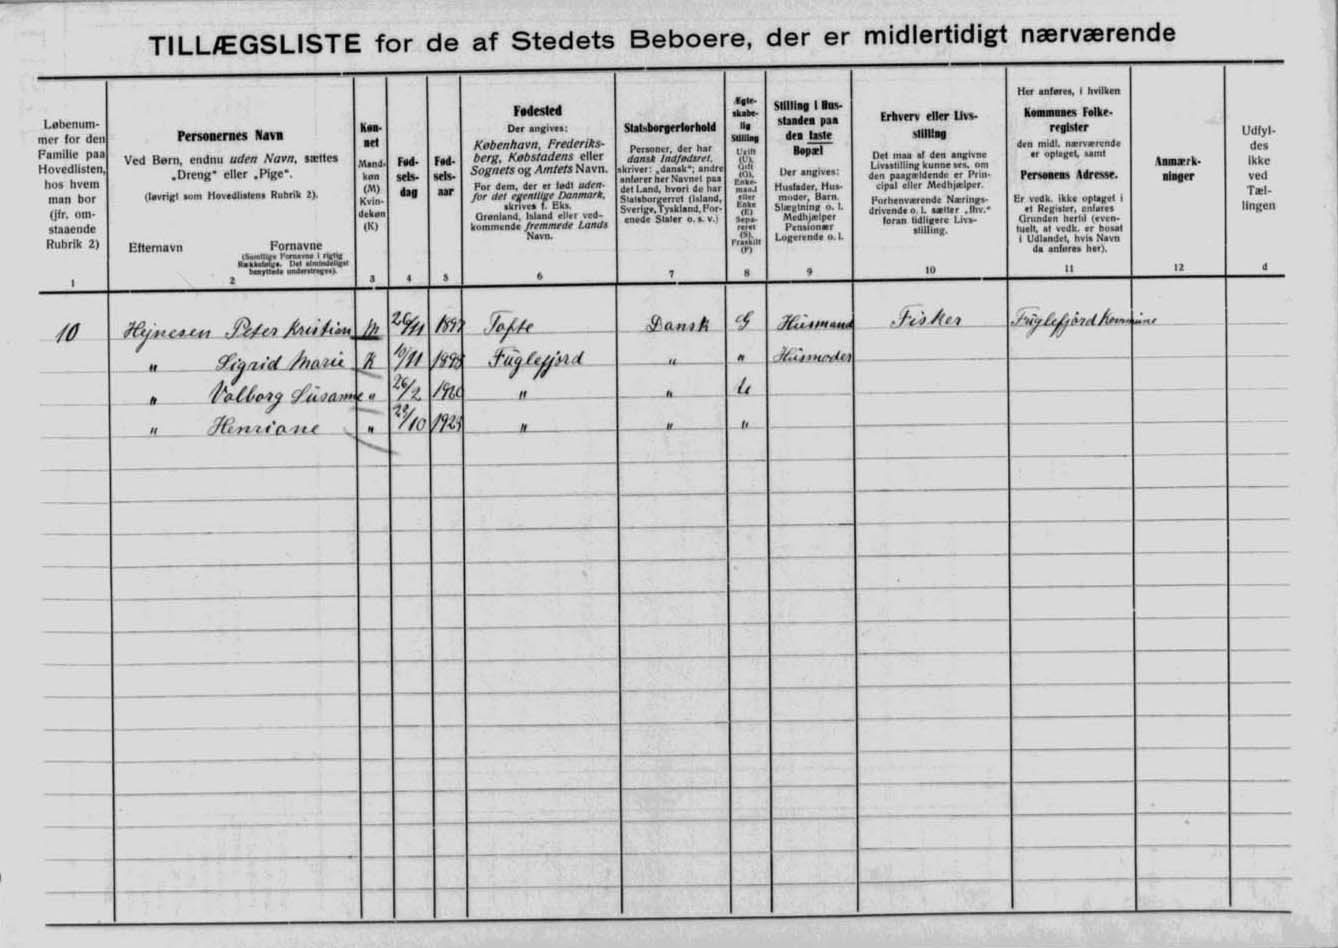 TILLÆGSLISTE for de af Stedets Beboere, der er midlertidigt nærværende
Løbenum-
mer for den
Familie paa
Hovedlisten,
hos hvem
man bor
(jfr. om-
staaende
Rubrik 2)
1
Personernes Navn
Ved Børn, endnu uden Navn, sættes
„Dreng" eller „Pige".
(Iøvrigt som Hovedlistens Rubrik 2).
Efternavn
Fornavne
(Samtlige Fornavne i rigtig
Rækkefølge. Det almindeligst
benyttede understreges).
2
Køn-
net
Mand-
køn
(M)
Kvin-
dekøn
(K)
3
Fød-
sels-
dag
4
Fød-
sels-
aar
5
Fødested
Der angives:
København, Frederiks-
berg, Købstadens eller
Sognets og Amtets Navn.
For dem, der er født uden-
for det egentlige Danmark,
skrives f. Eks.
Grønland, Island eller ved-
kommende fremmede Lands
Navn.
6
Statsborgerforhold
Personer, der har
dansk Indfødsret,
skriver: „dansk"; andre
anfører her Navnet paa
det Land, hvori de har
Statsborgerret (Island,
Sverige, Tyskland, For-
enede Stater o. s. v.)
7
Ægte-
skabe-
lig
Stilling
Ugift
(U),
Gift
(G),
Enke-
mand
eller
Enke
(E)
Sepa-
reret
(S),
Fraskilt
(F)
8
Stilling i Hus-
standen paa
den faste
Bopæl
Der angives:
Husfader, Hus-
moder, Barn,
Slægtning o. l.
Medhjælper
Pensionær
Logerende o. l.
9
Erhverv eller Livs-
stilling
Det maa af den angivne
Livsstilling kunne ses, om
den paagældende er Prin-
cipal eller Medhjælper.
Forhenværende Nærings-
drivende o. l. sætter „fhv."
foran tidligere Livs-
stilling.
10
Her anføres, i hvilken
Kommunes Folke-
register
den midl. nærværende
er optaget, samt
Personens Adresse.
Er vedk. ikke optaget i
et Register, anføres
Grunden hertil (even-
tuelt, at vedk. er bosat
i Udlandet, hvis Navn
da anføres her).
11
Anmærk-
ninger
12
Udfyl-
des
ikke
ved
Tæl-
lingen
d
10 Hejnesen Peter Kristian M 26/11 1897 Tofte Dansk G Husmand Fisker Fuglefjord Kommune
" Sigrid Marie K 10/11 1898 Fuglefjord " " Husmoder
" Valborg Susanne " 26/2 " " U
" Henriane " /10 " " "